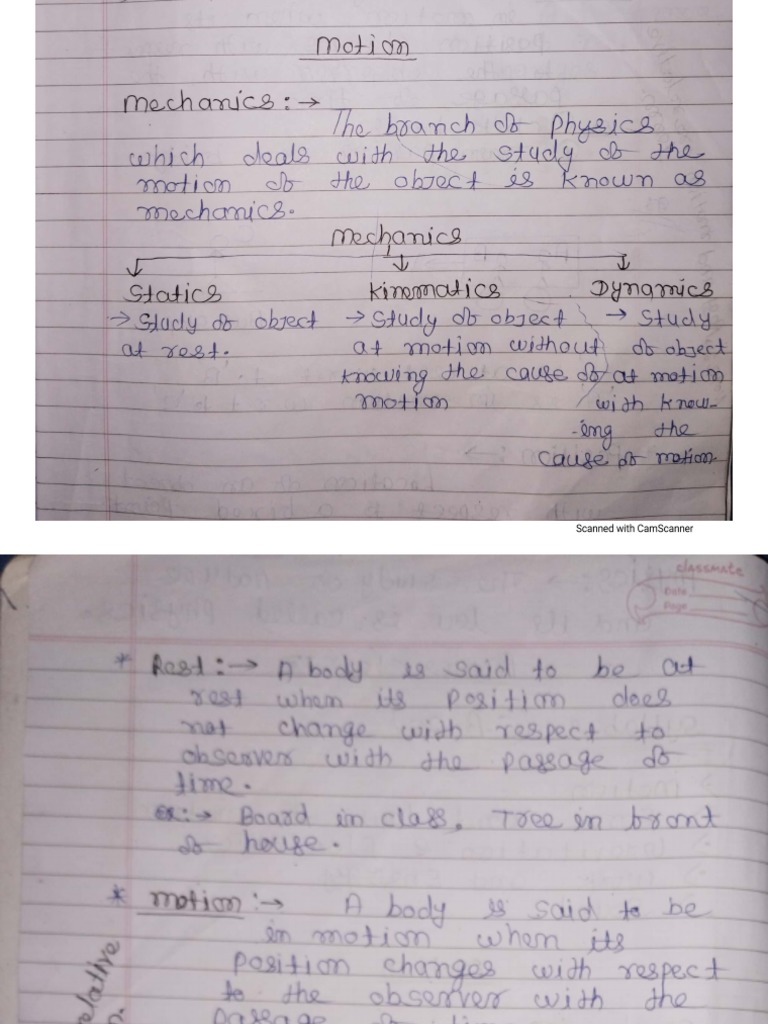 Motion
Mechanics :→
The branch of Physics
which deals with the study of the
motion of the object is known as
mechanics.
Mechanics
Statics Kinematics Dynamics
→ Study of object → Study of object → Study
at rest. at motion without of object
knowing the cause of at motion
motion with know-
-ing the
cause of motion.
Scanned with CamScanner
classmate
Date
Page
* Rest :→ A body is said to be at
rest when its position does
not change with respect to
observer with the passage of
time.
Ex:→ Board in class, Tree in front
of house.
* Motion :→ A body is said to be
in motion when its
position changes with respect
to the observer with the
passage of